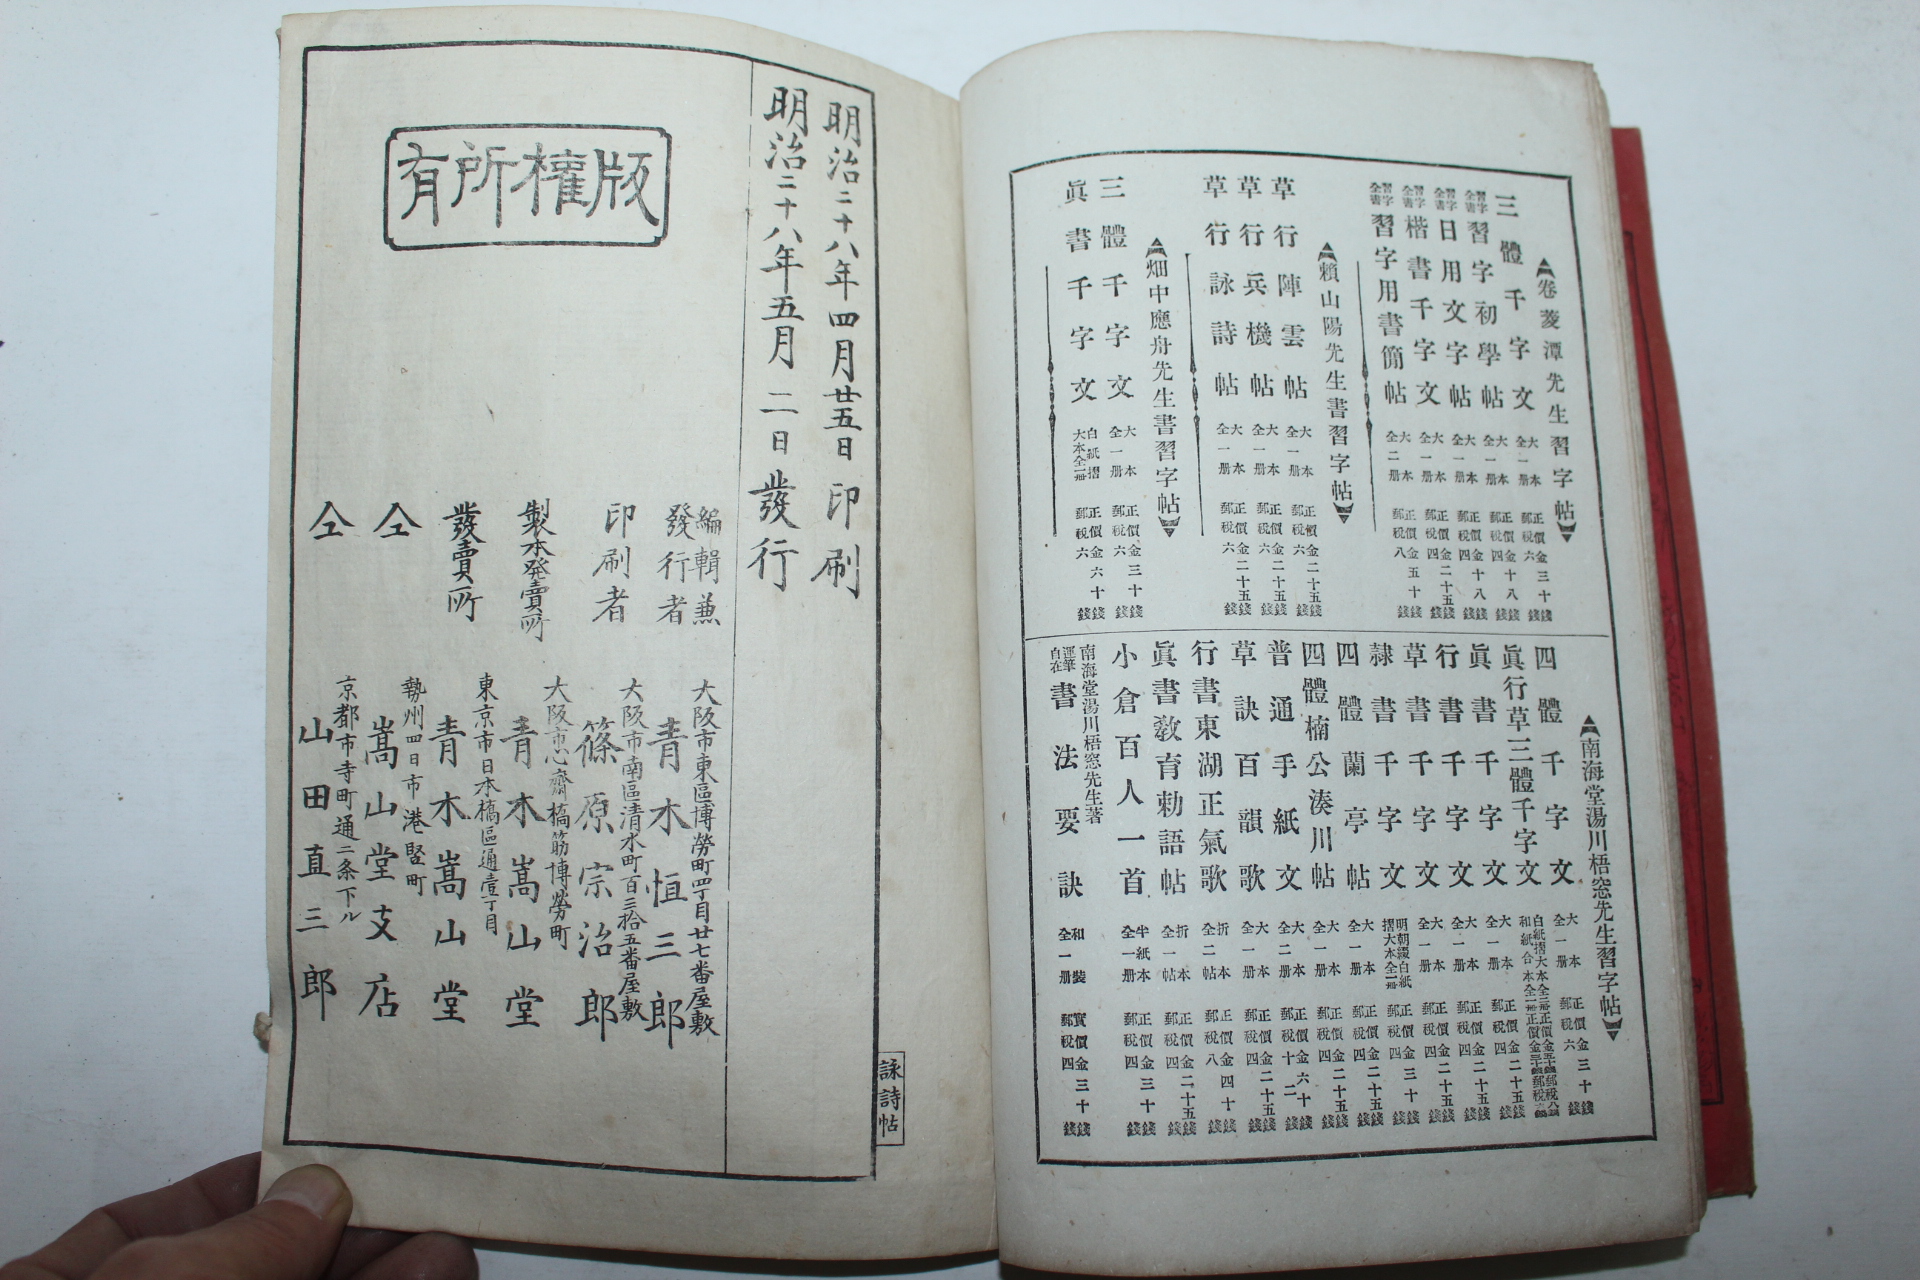 ▲卷菱潭先生習字帖▼
三體千字文 大本全一册 正價金三十錢 郵税六錢
習字全書 習字初學帖 大本全一册 正價金十八錢 郵税四錢
習字全書 日用文字帖 大本全一册 正價金十八錢 郵税四錢
習字全書 楷書千字文 大本全一册 正價金二十五錢 郵税四錢
習字全書 習字用書簡帖 大本全二册 正價金五十錢 郵税八錢
▲賴山陽先生書習字帖▼
草行陣雲帖 大本全一册 正價金二十五錢 郵税六錢
草行兵機帖 大本全一册 正價金二十五錢 郵税六錢
草行詠詩帖 大本全一册 正價金二十五錢 郵税六錢
▲畑中應舟先生書習字帖▼
三體千字文 大本全一册 正價金三十錢 郵税六錢
眞書千字文 白紙摺大本全一册 正價金六十錢 郵税六錢
▲南海堂湯川梧窓先生習字帖▼
四體千字文 大本全一册 正價金三十錢 郵税六錢
眞行草三體千字文
眞書千字文 大本全一册 正價金二十五錢 郵税四錢
行書千字文 大本全一册 正價金二十五錢 郵税四錢
草書千字文 大本全一册 正價金二十五錢 郵税四錢
隷書千字文 明朝綴白紙摺大本全一册 正價金三十錢 郵税四錢
四體蘭亭帖 大本全一册 正價金二十五錢 郵税四錢
四體楠公湊川帖 大本全一册 正價金二十五錢 郵税四錢
普通手紙文 大本全二册 正價金六十錢 郵税十二錢
草訣百韻歌 大本全一册 正價金二十五錢 郵税四錢
行書東湖正氣歌 折本全二帖 正價金四十錢 郵税八錢
眞書敎育勅語帖 折本全一帖 正價金二十五錢 郵税四錢
小倉百人一首 半紙本全一册 正價金三十錢 郵税四錢
南海堂湯川梧窓先生著
運筆自在 書法要訣 和裝全一册 實價金三十錢 郵税四錢
明治二十八年四月廿五日印刷
明治二十八年五月二日發行
版權所有
編輯兼發行者 大阪市東區博勞町四丁目廿七番屋敷 青木恒三郎
印刷者 大阪市南區清水町百三拾五番屋敷 篠原宗治郎
製本発賣所 大阪市心齋橋筋博勞町 青木嵩山堂
發賣所 東京市日本橋區通壹丁目 青木嵩山堂
仝 勢州四日市港竪町 嵩山堂支店
仝 京都市寺町通二条下ル 山田直三郎
詠詩帖